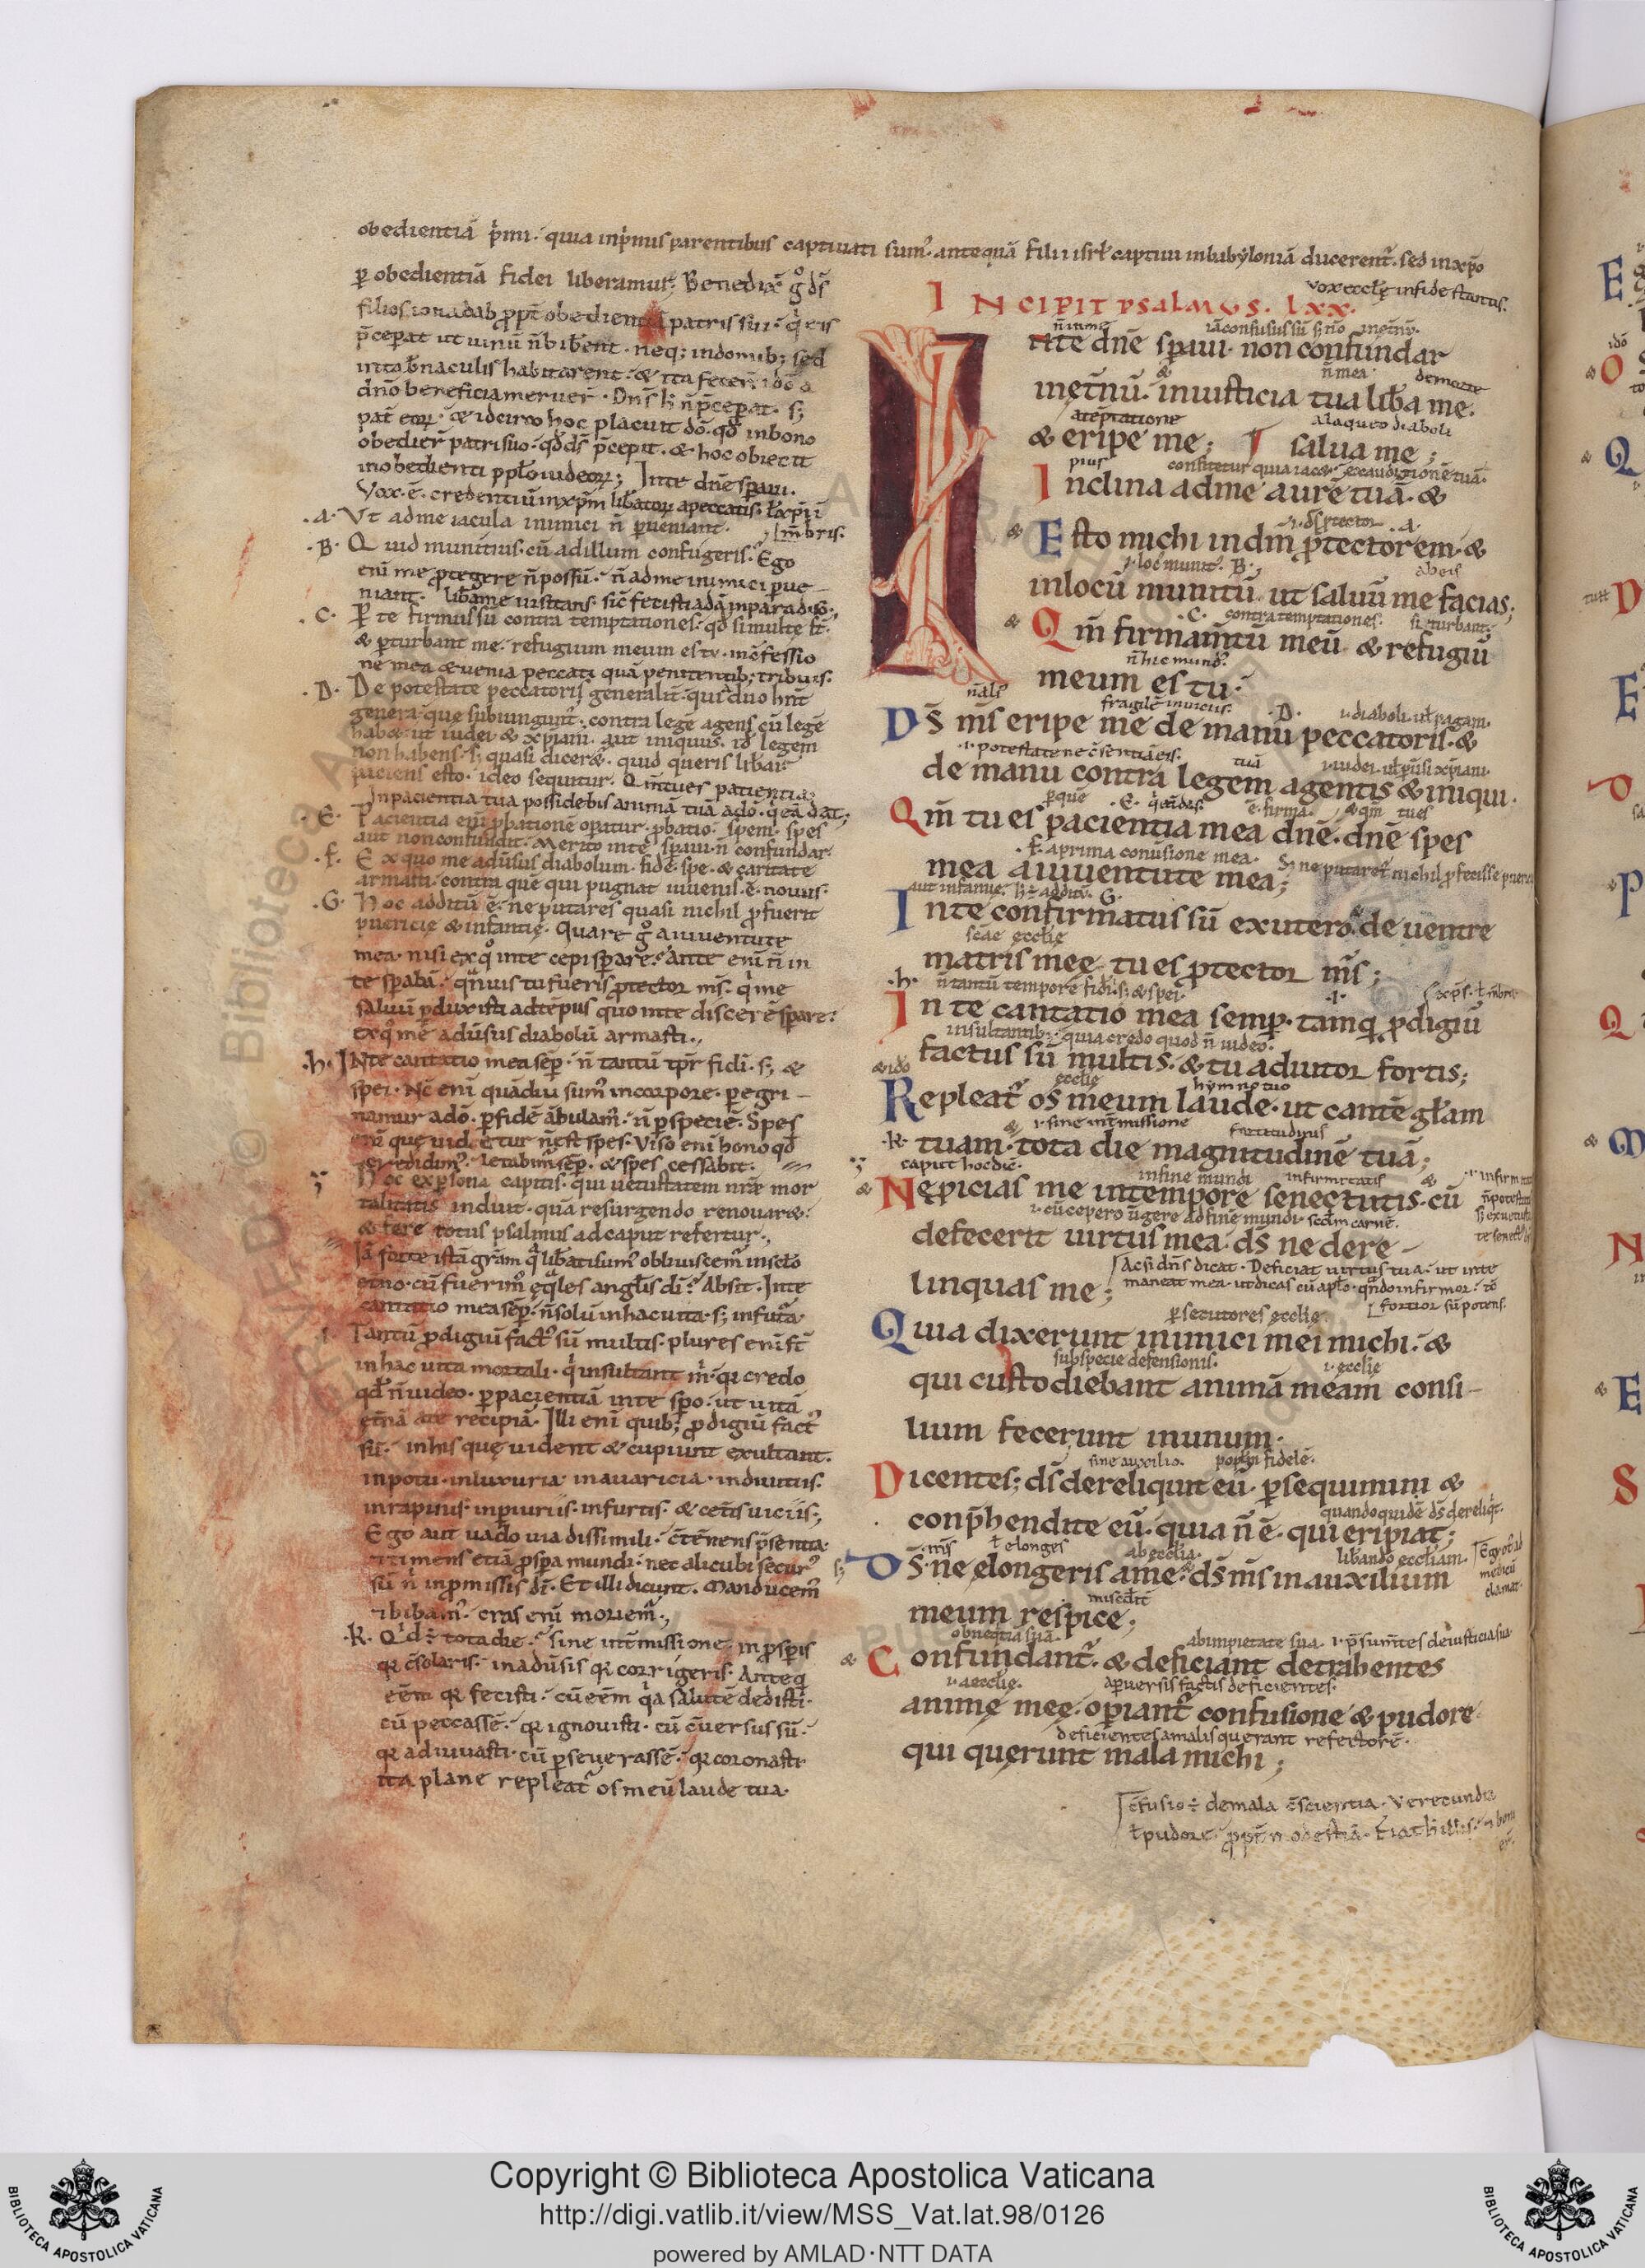 obedientiā p̄mi. quia inp̄mis parentibus captiuati sum᷒. antequā filii isrł captiui inbabyloniā ducerent᷒. sed inxp̄o
ꝑ obedientiā fidei liberamur; Benedix̄ g̊ ds̄
filios ionadab ꝓpt̄ obedientiā patris sui. q̇ eis
p̄ceperat ut uinū n̄ bibērent. neq; indomib; sed
intab̄naculis habitarent. & ita fecer̄ idō a
dn̄o beneficia meruer̄. Dn̄s
pat̄ eoꝝ. & idcirco hoc placuit dō. qđ inbono
obedier̄ patri suo. qđ ds̄ p̄cepit. & hoc obiecit
inobedienti pplo iudeoꝝ; Inte dn̄e sꝑaui.
Vox .ē. credentiū inxp̄m libatoꝝ apeccatis. ł xp̄i ū
mb̄ris.
.A. Vt adme iacula inimici n̄ ꝑueniant.
.B. Quid munitius. cū adillum confugeris. Ego
eni me ꝓtegere n̄ possū. n̄ adme inimici ꝑue-
niant. libāme uisitans. sic̄ fecisti adā inparadiso.
.C. ꝑ te firmus sū contra temptationes. qđ si multę st̄
& ꝑturbant me. refugium meum es tu. incfessio
ne mea & uenia peccati quā penitentib; tribuis.
.D. De potestate peccatoris generalit̄. qui duo hn̄t
genera. que subiungunt᷒. contra legē agens cū legē
habet. ut iudei & xp̄iani. aut iniquus. id legem
non habens. s; quasi diceret. quid queris libari
paciens esto. ideo sequitur. Qm̄ tu es patientia;
Inpacientia tua possidebis animā tuā adō. q eā dat;
.E. Pacientia eni ꝓbationē oꝑatur. ꝓbatio spem. spes
aut non confundit. Merito inte sꝑaui. n̄ confundar.
.F. Ex quo me adūsus diabolum. fide. spe. & caritate
armasti. contra quē qui pugnat iuuenis .ē. nouus.
.G. Hoc additū ē. ne putares quasi nichil ꝓfuerit
puericię & infantię. Quare g̊ aiuuentute
mea. nisi exq̊ inte cepi sꝑare. Ante eni n̄ in
te sꝑabā. quāuis tu fueris ꝓtector ms̄. q̇ me
saluū ꝑduxisti adtēpus quo inte discerē sꝑare.
exq̊ me adūsus diabolū armasti.,
.h. INte cantatio mea sēꝑ. n̄ tantū tp̄r fidei. s; &
spei. Nc̄ eni quādiu sum᷒ incorpore. ꝑegri-
namur adō. ꝑfidē ābulam᷒. n̄ ꝑ specię. Spes
eni que uidetur n̄ est spes. Viso eni bono qđ
credidim᷒. letabim᷒ sēꝑ. & spes cessabit.
Hoc exꝑsona capitis. qui uetustatem nr̄ę mor
talitatis induit. quā resurgendo renouaret.
& fere totus psalmus adcaput refertur.,
Iā forte istā gr̄am q̄ libati sum᷒ obliuiscem᷒ insclo
etno. cū fuerim᷒ ęquales angłis di. Absit. Inte
cantatio mea sēꝑ. n̄ solū inhac uita. s; infuta.
.I. Tantū ꝓdigiū fact᷒ sū multis. plures eni st̄
inhac uita mortali. q̇ insultant m̄. qı credo
qđ n̄ uideo. ꝑ pacientiā inte spo. ut uitā
etnā ate recipiā. Illi eni quib; ꝓdigiū fact᷒
sū. inhis quę uident & cupiunt exultant.
inpotu. inluxuria. inauaricia. indiuitiis.
inrapinis. iniuriis. infurtis. & cetis uiciis;
Ego aut uado uia dissimili. c̄tēnens p̄sentia.
timens etiā ꝓsꝑa mundi. nec alicubi secur᷒
sū n̄ inꝓmissis di. Et illi dicunt. Manducem᷒
& bibam᷒. cras eni moriem᷒.,
.K. Q'd ÷ tota die. sine int̄missione. in ꝓsꝑis
qı c̄solaris. inadūsis qı corrigeris. Anteq̄
eēm qı fecisti. cū eēm q̄a salutē dedisti.
cū peccassē. qı ignouisti. cū c̄uersus sū.
qı adiuuasti. cū ꝑseuerassē. qı coronasti.
ita plane repleat᷒ os meū laude tua.
vox ecclę infide stantis.
INCIPIT PSALMVS. LXX.
iā confusus sū
INte dn̄e sꝑaui. non confundar
n̄ mea. demorte
inet̄nū. iniusticia tua liba me.
atēptatione alaqueo diaboli
& eripe me; & salua me;
pius confitetur quia iacet. exaudi
Inclina adme aurē tuā. &
.i. ds̄ ꝓtector .A.
& Esto michi indm̄ ꝓtectorem. &
.i. loc᷒ munit᷒. B. ab eis
inlocū munitū. ut saluū me facias;
.C. contra temptationes. si turbant.
& Qm̄ firmamtū meū & refugiū
n̄ hic mund᷒.
meum es tu.
fragilē inuicus. .D. .i. diaboli. ut pagani.
Ds̄ ms̄ eripe me de manu peccatoris. &
.i. potestate ne c̄sentiā eis. tuā .i. iudei. uł pusi xp̄iani.
de manu contra legem agentis & iniqui.
ꝑ quē .E. ē. firma. & qm̄ tu es
Qm̄ tu es pacientia mea dn̄e. dn̄e spes
.F. aprima conūsione mea. S; ne putaret nichil ꝓfecisse
mea aiuuentute mea;
aut infantię. h ÷ additū. G.
Inte confirmatus sū exutero. de uentre
scāe ecclię
matris meę tu es ꝓtector ms̄;
.h. n̄ tantū tempore fidei. s; & spei. .I. xp̄s. ł mbra
In te cantatio mea semꝑ. tamq̄ ꝓdigiū
insultantib; quia credo quod n̄ uideo.
factus sū multis. & tu adiutor fortis;
ecclię hymno tuo
Repleat᷒ os meum laude. ut cantē głam
.i. sine int̄missione
.K. tuam. tota die magnitudinē tuā;
caput hoc dic̄. infine mundi infirmitatis
& Nępicias me intempore senectutis. cū
.i. cū cepero ūgere adfinē mundi. scdm carnē.
defecerit uirtus mea. ds̄ ne dere-
Ac si dn̄s dicat. Deficiat uirtus tua. ut inte
linquas me; maneat mea. ut dicas cū apło. qn̄do infirmor. tc̄
fortior sū potens.
ꝑsecutores ecclię.
Quia dixerunt inimici mei michi. &
subspecie defensionis. .i. ecclię
qui custodiebant animā meam consi-
lium fecerunt inunum.
sine auxilio. poplm fidelē.
Dicentes; ds̄ dereliquit eū. ꝑsequimini &
quando quidē ds̄ dereliqt̄.
conp̄hendite eū. quia n̄ ē. qui eripiat;
ms̄ ł elonges ab ecclia. libando eccliam.
Ds̄. ne elongeris ame. ds̄ ms̄ inauxilium
medicū
clamat.
meum respice;
ob nequitia sua. abimpietate sua. .i. p̄sum̄tes deiusticia sua
& Confundant᷒. & deficiant detrahentes
.i. aecclię. aꝑuersis factis deficientes.
animę meę. oꝑiant᷒ confusione & pudore.
deficientes amalis querant refectorē.
qui querunt mala michi;
c̄fusio ÷ demala c̄scientia. Verecundia
ł pudore. ꝓpt̄ modestiā.
Copyright © Biblioteca Apostolica Vaticana
http://digi.vatlib.it/view/MSS_Vat.lat.98/0126
powered by AMLAD·NTT DATA
BIBLIOTECA APOSTOLICA VATICANA
BIBLIOTECA APOSTOLICA VATICANA